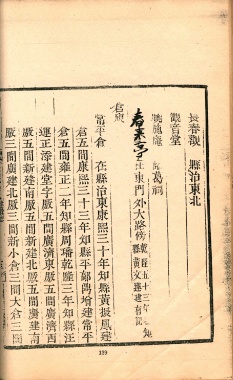 長春觀　縣治東北
觀音堂
葛祠
春末亭　在東門外大路傍乾隆五十三年知縣黃文蓮建有記
倉廒
常平倉　在縣治東康熙三十年知縣黃振鳳建
倉五間康熙三十三年知縣平郇鼎增建常平
倉五間雍正二年知縣周璠乾隆三年知縣汪
運正添建堂字厫五間廣濟東厫五間廣濟西
厫五間新建南厫五間新建北厫五間廣建南
厫三間廣建北厫三間新小倉三間大倉三間
139